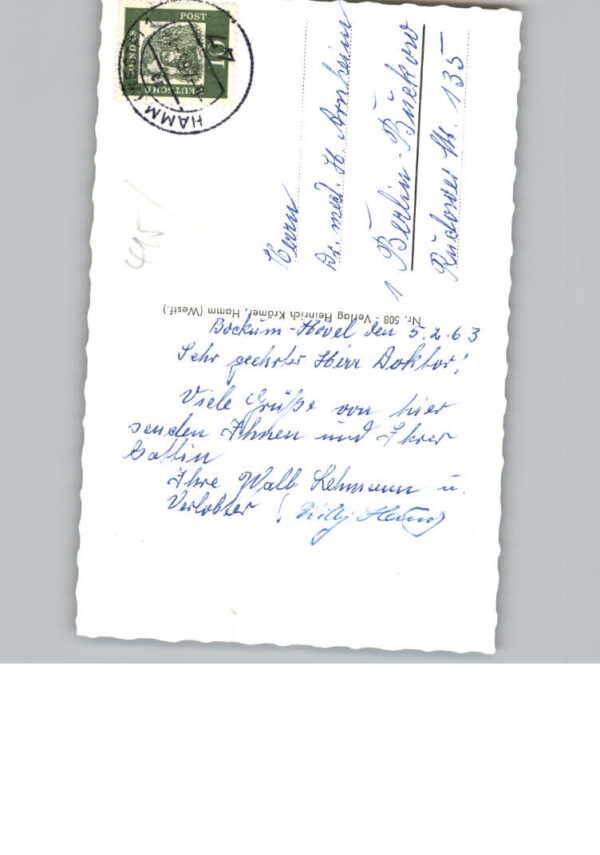 POST
DEUTSCHE BUNDES
HAMM
Herrn
Dr. med. H. Arnheim
1 Berlin-Buckow
Rudower Str. 135
Nr. 508 - Verlag Heinrich Krämer, Hamm (Westf.)
Bockum-Hövel den 5.2.63
Sehr geehrter Herr Doktor!
Viele Grüße von hier
senden Ihnen und Ihrer
Gattin
Ihre Walb Lehmann u.
Verlobter (Willy